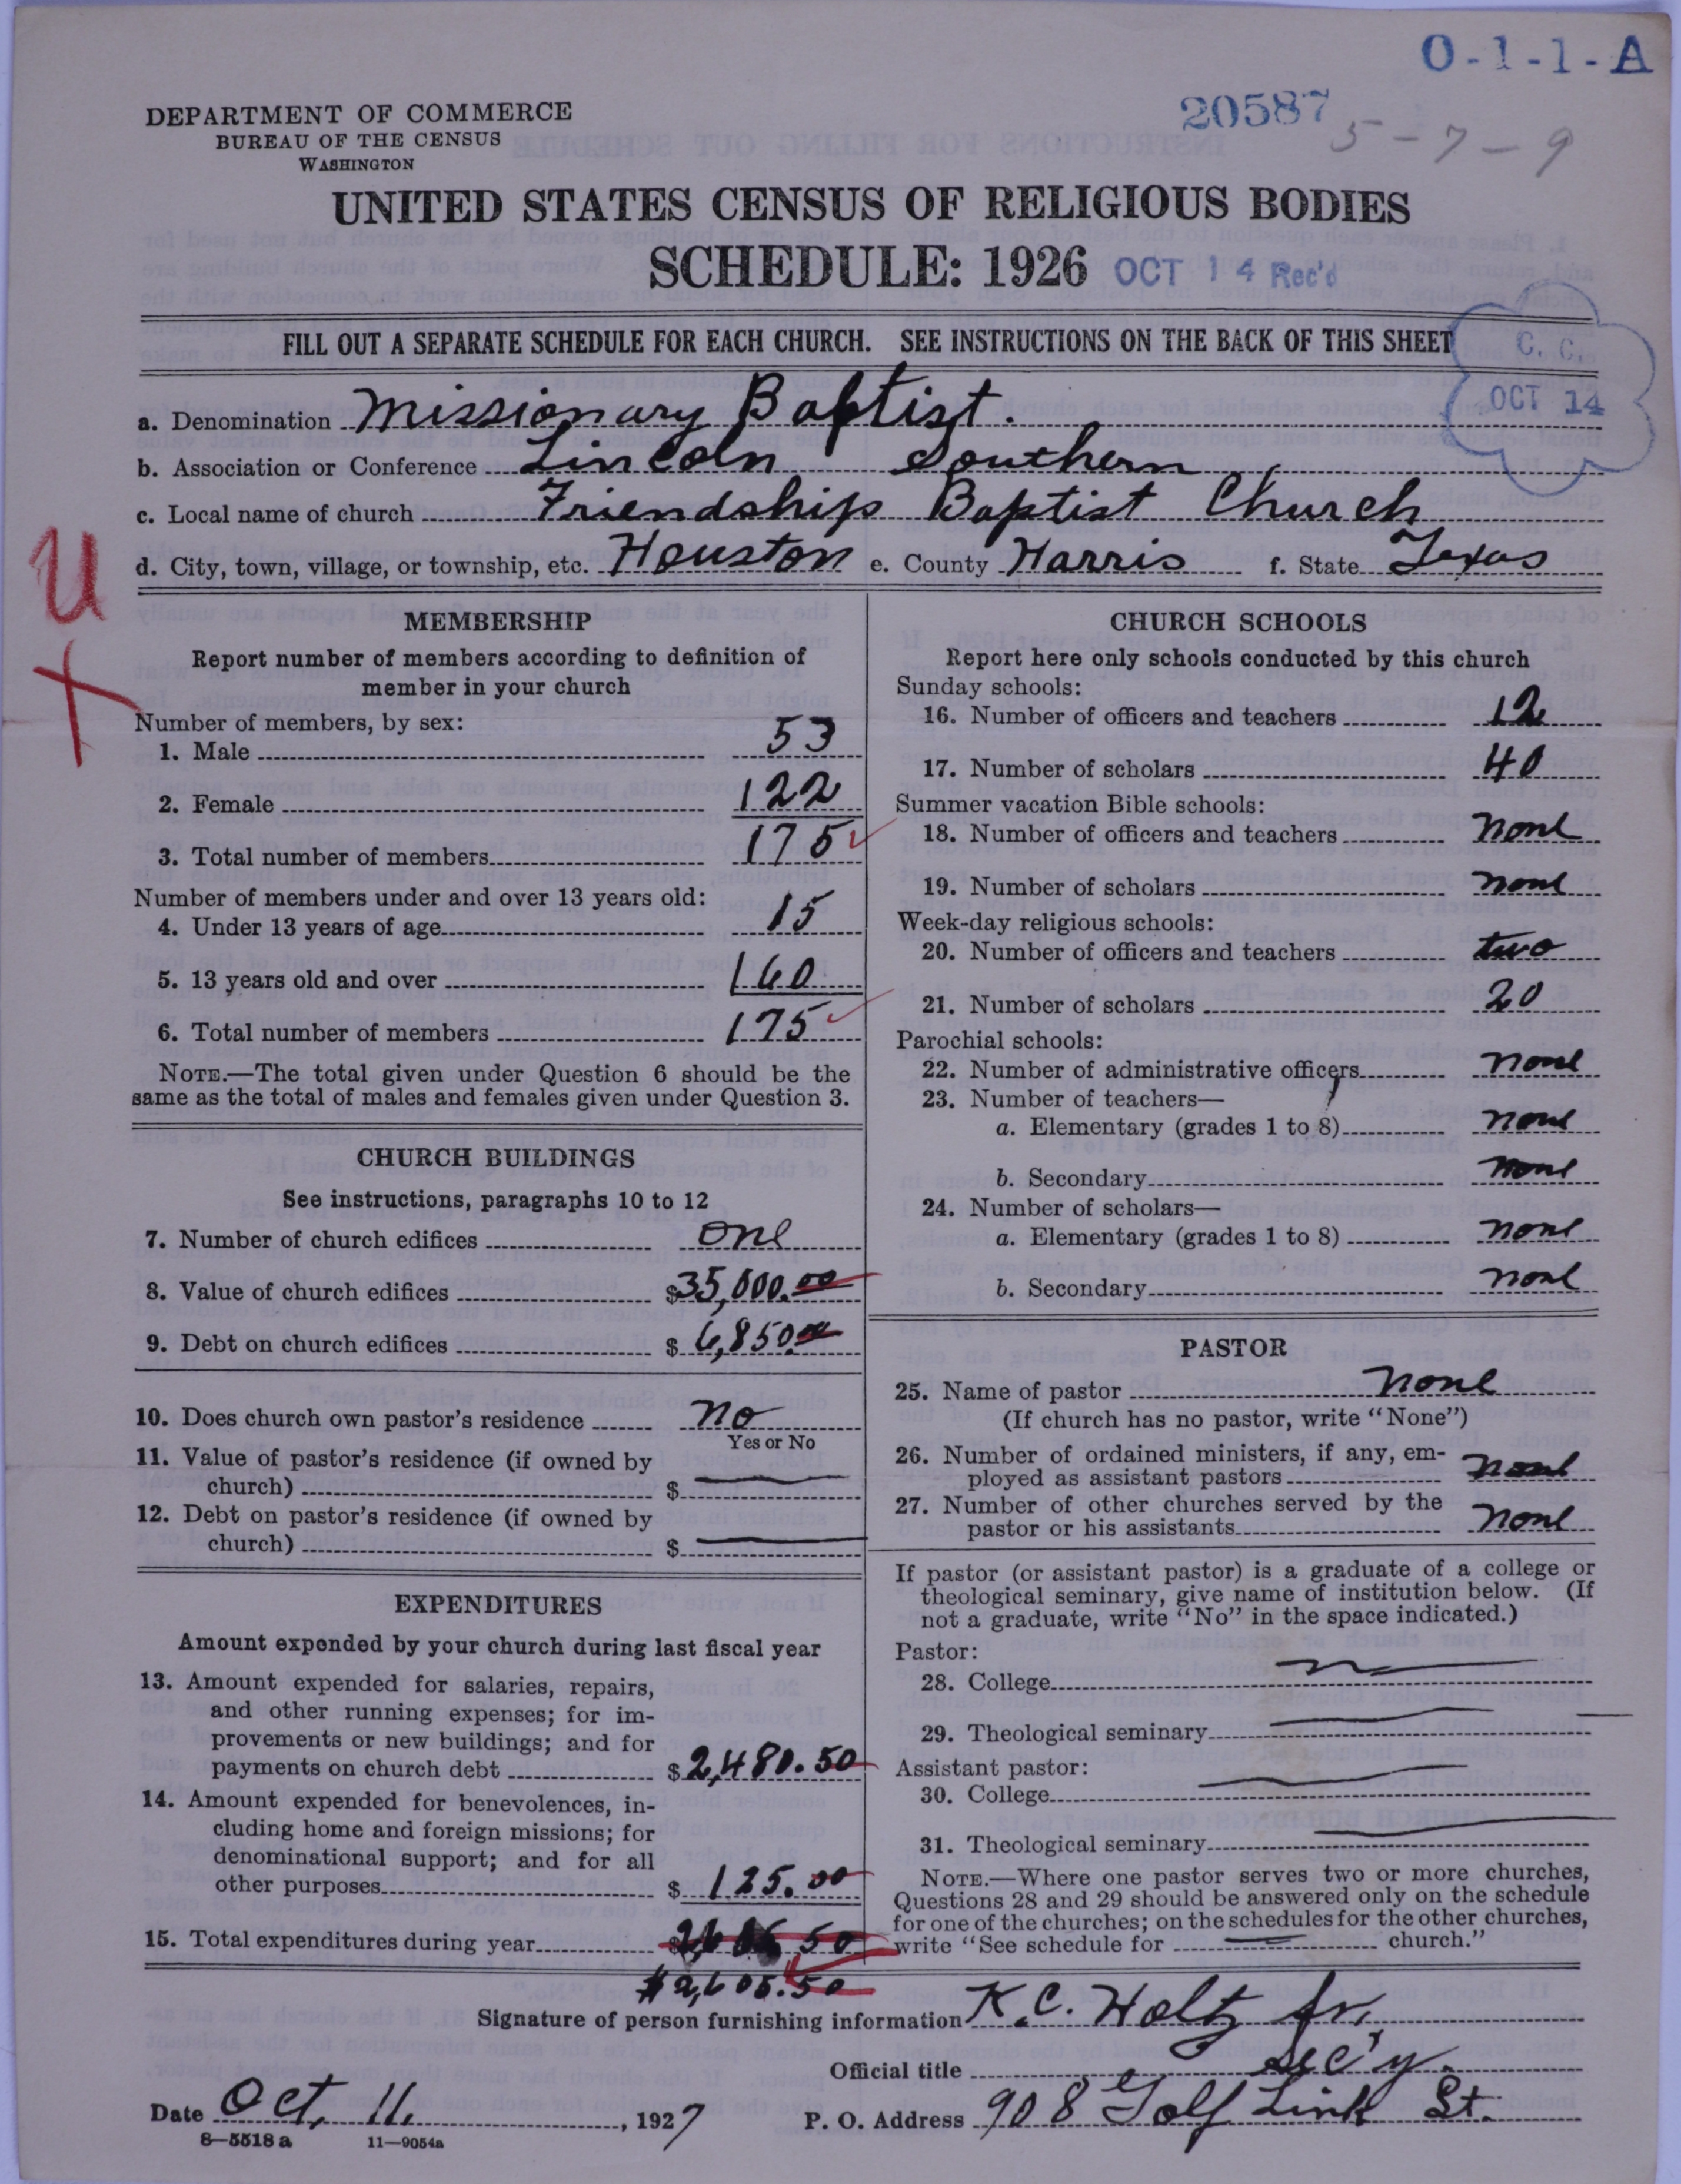 O-1-1-A
DEPARTMENT OF COMMERCE
BUREAU OF THE CENSUS
WASHINGTON
20587
5-7-9
UNITED STATES CENSUS OF RELIGIOUS BODIES
SCHEDULE: 1926
OCT 14 Rec'd
FILL OUT A SEPARATE SCHEDULE FOR EACH CHURCH. SEE INSTRUCTIONS ON THE BACK OF THIS SHEET
C. C.
OCT 14
a. Denomination Missionary Baptist.
b. Association or Conference Lincoln Southern
c. Local name of church Friendship Baptist Church
d. City, town, village, or township, etc. Houston e. County Harris f. State Texas
U
X
MEMBERSHIP
Report number of members according to definition of
member in your church
Number of members, by sex:
1. Male 53
2. Female 122
3. Total number of members 175
Number of members under and over 13 years old:
4. Under 13 years of age 15
5. 13 years old and over 160
6. Total number of members 175
NOTE.—The total given under Question 6 should be the
same as the total of males and females given under Question 3.
CHURCH BUILDINGS
See instructions, paragraphs 10 to 12
7. Number of church edifices one
8. Value of church edifices $35,000.00
9. Debt on church edifices $6,850.00
10. Does church own pastor's residence no
Yes or No
11. Value of pastor's residence (if owned by
church) $
12. Debt on pastor's residence (if owned by
church) $
EXPENDITURES
Amount expended by your church during last fiscal year
13. Amount expended for salaries, repairs,
and other running expenses; for im-
provements or new buildings; and for
payments on church debt $2,480.50
14. Amount expended for benevolences, in-
cluding home and foreign missions; for
denominational support; and for all
other purposes $125.00
15. Total expenditures during year $
$2,605.50
CHURCH SCHOOLS
Report here only schools conducted by this church
Sunday schools:
16. Number of officers and teachers 12
17. Number of scholars 40
Summer vacation Bible schools:
18. Number of officers and teachers none
19. Number of scholars none
Week-day religious schools:
20. Number of officers and teachers two
21. Number of scholars 20
Parochial schools:
22. Number of administrative officers none
23. Number of teachers—
a. Elementary (grades 1 to 8) none
b. Secondary none
24. Number of scholars—
a. Elementary (grades 1 to 8) none
b. Secondary none
PASTOR
25. Name of pastor none
(If church has no pastor, write "None")
26. Number of ordained ministers, if any, em-
ployed as assistant pastors none
27. Number of other churches served by the
pastor or his assistants none
If pastor (or assistant pastor) is a graduate of a college or
theological seminary, give name of institution below. (If
not a graduate, write "No" in the space indicated.)
Pastor:
28. College
29. Theological seminary
Assistant pastor:
30. College
31. Theological seminary
NOTE.—Where one pastor serves two or more churches,
Questions 28 and 29 should be answered only on the schedule
for one of the churches; on the schedules for the other churches,
write "See schedule for church."
Signature of person furnishing information K. C. Holtz Jr.
Official title Sec'y.
Date Oct. 11, 1927 P. O. Address 908 Golf Link St.
8—5518 a 11—9054a